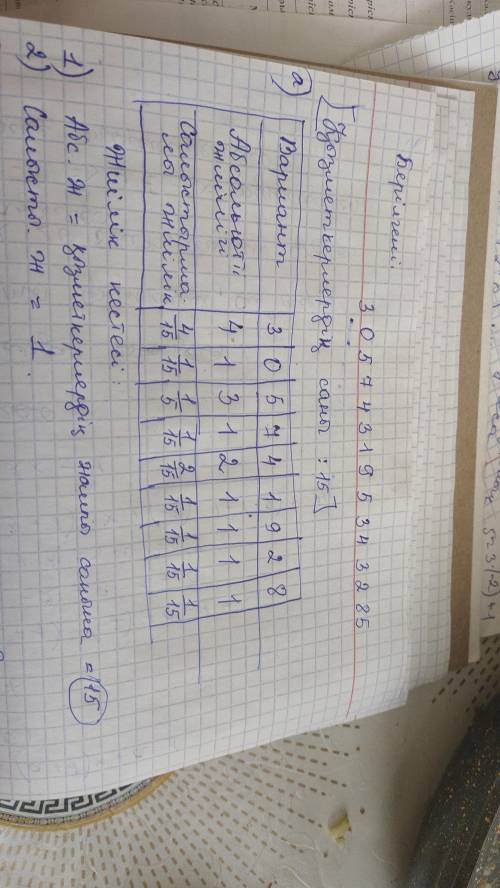 Берілгені:
3 0 5 7 4 3 1 9 5 3 4 3 2 8 5
[Қызметкерлердің саны : 15]
а)
Вариант 3 0 5 7 4 1 9 2 8
Абсолютті жиілігі 4 1 3 1 2 1 1 1 1
Салыстырмалы жиілік 4/15 1/15 1/5 1/15 2/15 1/15 1/15 1/15 1/15
Жиілік кестесі:
1) Абс. Ж = қызметкерлердің жалпы санына = 15
2) Салысты. Ж = 1.